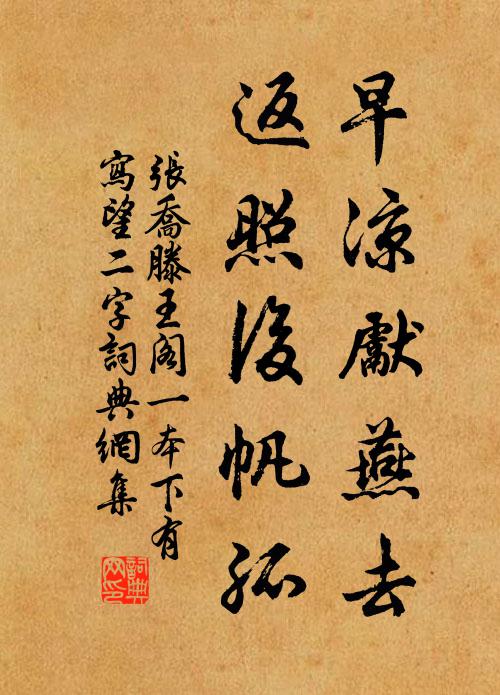 早涼獻燕去
返照後帆孤
張喬滕王閣一本下有
寫望二字詞典網集
詞典網印